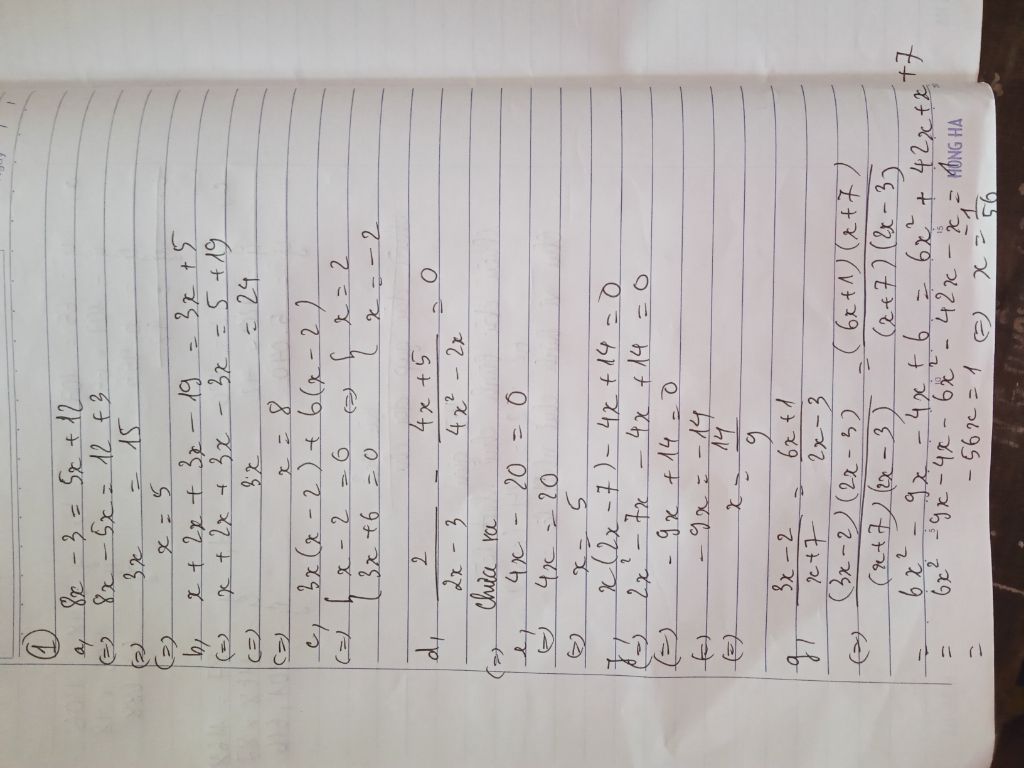 ①
a, 8x - 3 = 5x + 12
(=) 8x - 5x = 12 + 3
(=) 3x = 15
(=) x = 5
b, x + 2x + 3x - 19 = 3x + 5
(=) x + 2x + 3x - 3x = 5 + 19
(=) 3x = 24
(=) x = 8
c, 3x(x - 2) + 6(x - 2)
(=) { x - 2 = 6 (=) { x = 2
{ 3x + 6 = 0 { x = -2
d, 2/(2x - 3) - (4x + 5)/(4x² - 2x) = 0
(=) chưa ra
e, 4x - 20 = 0
(=) 4x = 20
(=) x = 5
f, x(2x - 7) - 4x + 14 = 0
(=) 2x² - 7x - 4x + 14 = 0
(=) - 9x + 14 = 0
(=) - 9x = -14
(=) x = 14/9
g, (3x - 2)/(x + 7) = (6x + 1)/(2x - 3)
(=) (3x - 2)(2x - 3)/(x + 7)(2x - 3) = (6x + 1)(x + 7)/(x + 7)(2x - 3)
= 6x² - 9x - 4x + 6 = 6x² + 42x + x + 7
= 6x² - 9x - 4x - 6x² - 42x - x = 1
= - 56x = 1 (=) x = -1/56
HỒNG HÀ